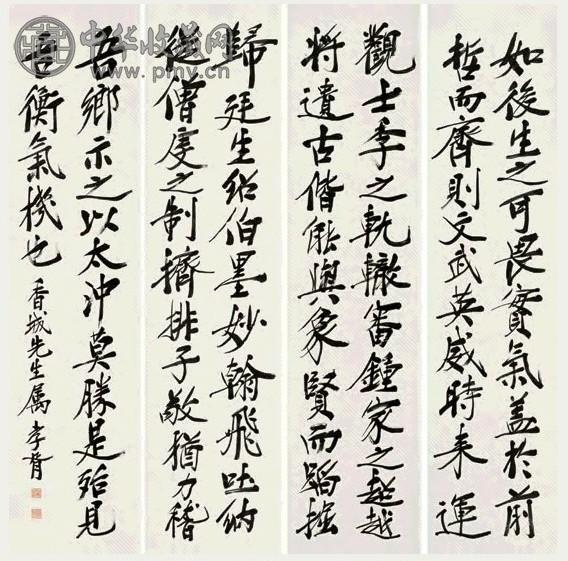 中华收藏网
如後生之可畏實氣蓋於前
哲而齊則文武英威時来運
觀士季之軌轍審鍾家之超越
將遺古偕能與象賢而蹈
歸廷生紹伯墨妙翰飛吐納
從僧虔之制擠排子敬猶力稽
吾鄉示之以太冲莫勝是殆見
吾衡氣機也 香城先生属 李